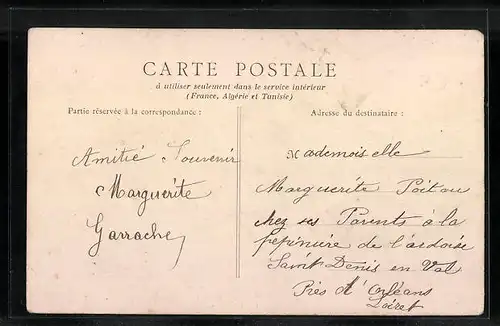 CARTE POSTALE
à utiliser seulement dans le service intérieur
(France, Algérie et Tunisie)
Partie réservée à la correspondance :
Amitié Souvenir
Marguerite
Garrache
Adresse du destinataire :
Mademoiselle
Marguerite Poitou
chez ses Parents à la
pepiniere de l'ardoise
Saint Denis en Val
Près d'Orléans
Loiret